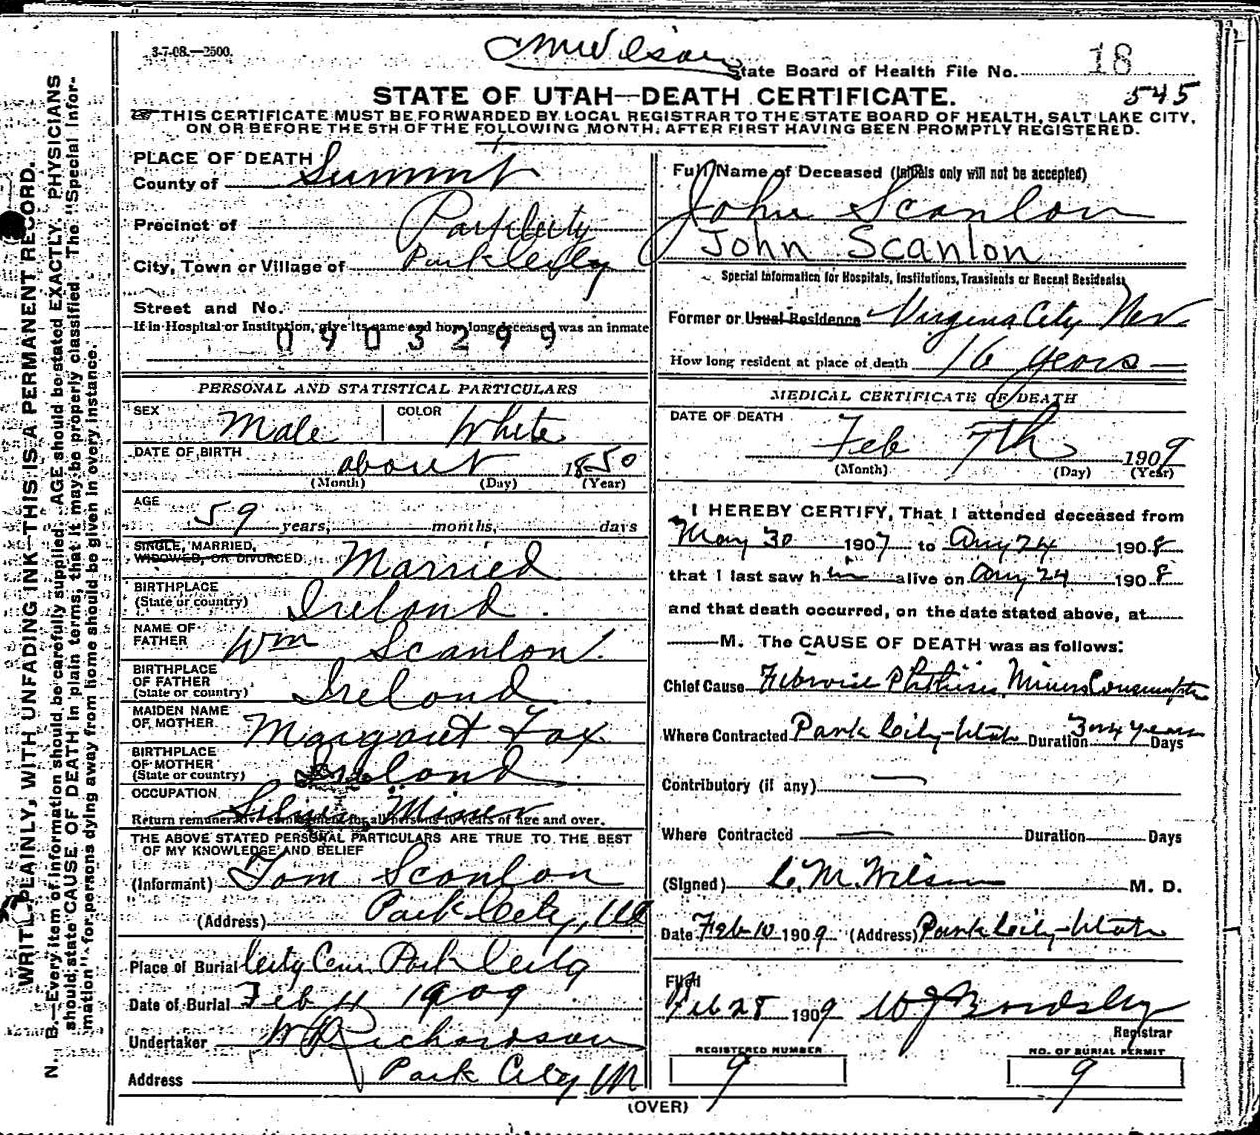 3-7-08.—2500.
CMWilson
State Board of Health File No. 18
545
STATE OF UTAH—DEATH CERTIFICATE.
THIS CERTIFICATE MUST BE FORWARDED BY LOCAL REGISTRAR TO THE STATE BOARD OF HEALTH, SALT LAKE CITY,
ON OR BEFORE THE 5TH OF THE FOLLOWING MONTH, AFTER FIRST HAVING BEEN PROMPTLY REGISTERED.
WRITE PLAINLY, WITH UNFADING INK—THIS IS A PERMANENT RECORD.
N. B.—Every item of information should be carefully supplied. AGE should be stated EXACTLY. PHYSICIANS
should state CAUSE OF DEATH in plain terms, that it may be properly classified. The "Special Infor-
mation" for persons dying away from home should be given in every instance.
PLACE OF DEATH
County of Summit
Precinct of Park City
City, Town or Village of Park City
Street and No.
If in Hospital or Institution, give its name and how long deceased was an inmate
0903299
PERSONAL AND STATISTICAL PARTICULARS
SEX Male COLOR White
DATE OF BIRTH about 1850
(Month) (Day) (Year)
AGE 59 years, months, days
SINGLE, MARRIED,
WIDOWED, OR DIVORCED Married
BIRTHPLACE
(State or country) Ireland
NAME OF
FATHER Wm Scanlon
BIRTHPLACE
OF FATHER
(State or country) Ireland
MAIDEN NAME
OF MOTHER Margaret Fox
BIRTHPLACE
OF MOTHER
(State or country) Ireland
OCCUPATION Silver Miner
Return remunerative employment for all persons 10 years of age and over.
THE ABOVE STATED PERSONAL PARTICULARS ARE TRUE TO THE BEST
OF MY KNOWLEDGE AND BELIEF
(Informant) Tom Scanlon
(Address) Park City, Ut
Place of Burial City Cem. Park City
Date of Burial Feb 11 1909
Undertaker W Richardson
Address Park City Ut
Full Name of Deceased (Initials only will not be accepted)
John Scanlon
John Scanlon
Special Information for Hospitals, Institutions, Transients or Recent Residents
Former or Usual Residence Virginia City Nev
How long resident at place of death 16 years
MEDICAL CERTIFICATE OF DEATH
DATE OF DEATH
Feb 7th 1909
(Month) (Day) (Year)
I HEREBY CERTIFY, That I attended deceased from
May 30 1907 to Aug 24 1908
that I last saw him alive on Aug 24 1908
and that death occurred, on the date stated above, at
M. The CAUSE OF DEATH was as follows:
Chief Cause Fibroid Phthisis, Miners Consumption
Where Contracted Park City-Utah Duration 3 or 4 years Days
Contributory (if any) —
Where Contracted — Duration Days
(Signed) C. M. Wilson M. D.
Date Feb 10 1909 (Address) Park City-Utah
Filed
Feb 28 1909 W J Bardsley
Registrar
REGISTERED NUMBER
9
NO. OF BURIAL PERMIT
9
(OVER)